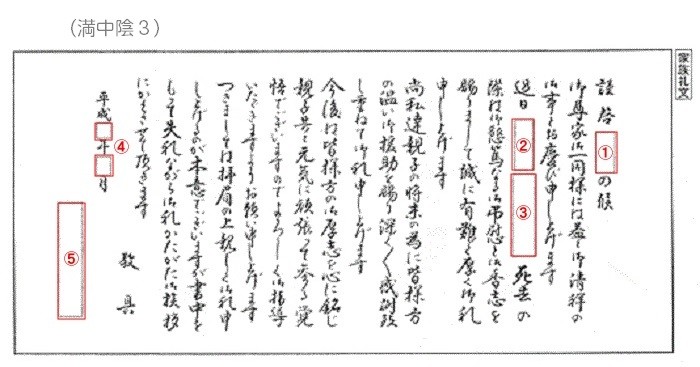 （満中陰３）
家族礼文
謹啓 ① の候
御尊家御一同様には益々御清祥の
御事とお慶び申し上げます
過日 ② ③ 死去の
際は御懇篤なる御弔慰と御香志を
賜りまして誠に有難く厚く御礼
申し上げます
尚私達親子の将来の為に皆様方
の温い御援助を賜り深く〱感謝致
し重ねて御礼申し上げます
今後は皆様方の御厚志を心に銘じ
親子共々元気に頑張って参る覚
悟でございますのでよろしく御指導
いただきますようお願い申し上げます
つきましては拝眉の上親しく御礼申
し上ぐるのが本意でございますが書中を
もって失礼ながら御礼かたがた御挨拶
にかえさせて頂きます
敬具
平成 年 月 ④
⑤